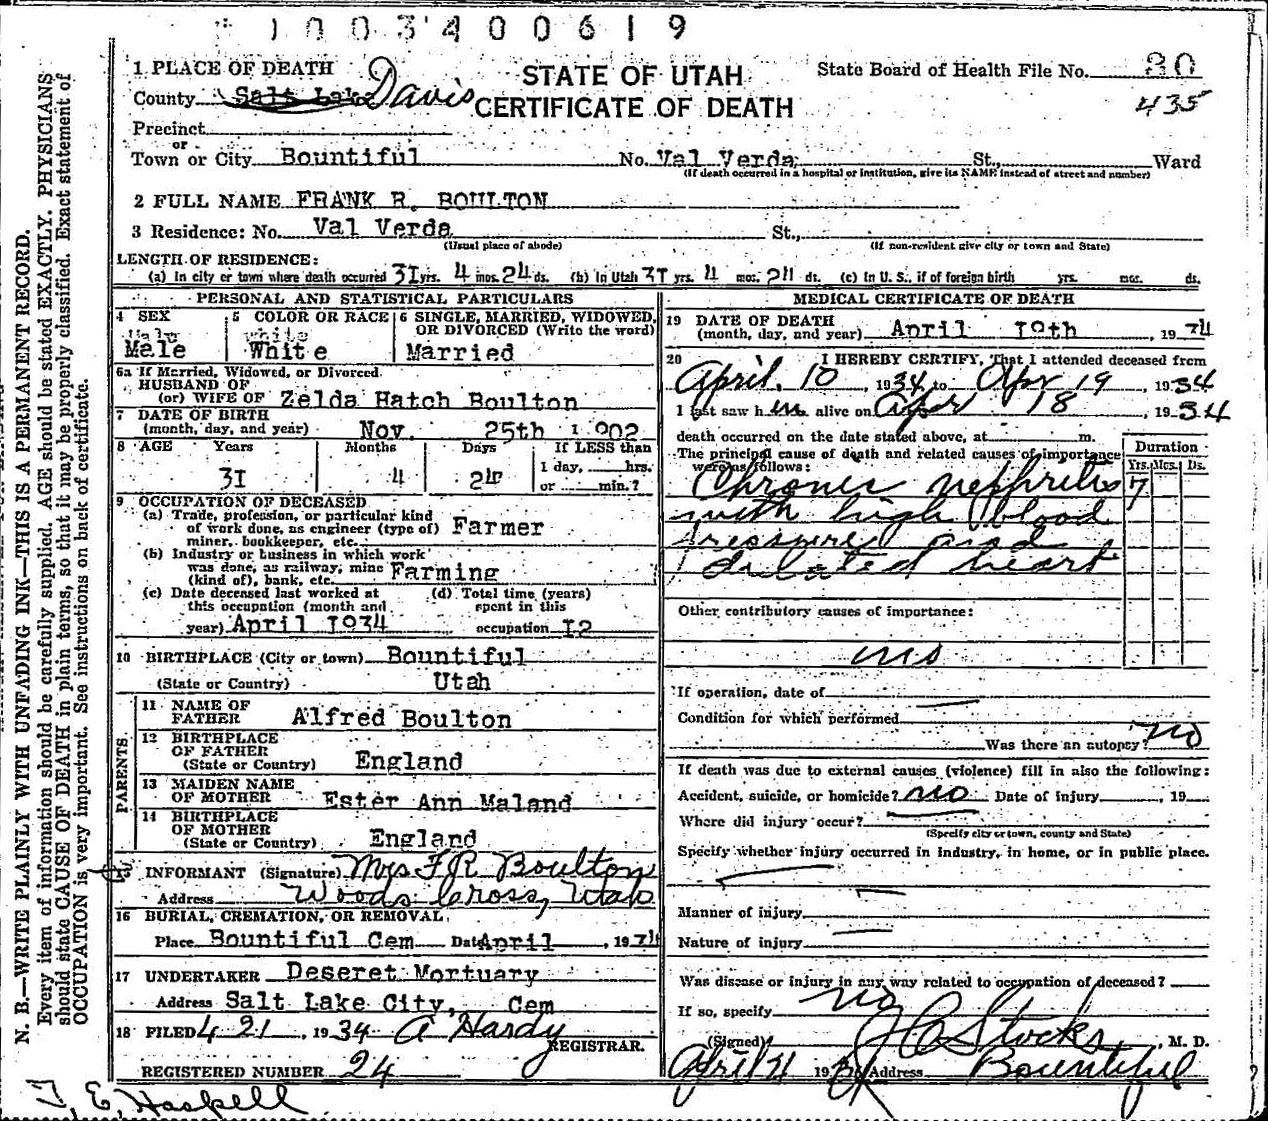 1003400619
1 PLACE OF DEATH
STATE OF UTAH
State Board of Health File No. 80
County Salt Lake Davis
CERTIFICATE OF DEATH
435
Precinct
or
Town or City Bountiful No. Val Verda St., Ward
(If death occurred in a hospital or institution, give its NAME instead of street and number)
2 FULL NAME FRANK R. BOULTON
3 Residence: No. Val Verda St.,
(Usual place of abode) (If non-resident give city or town and State)
LENGTH OF RESIDENCE:
(a) In city or town where death occurred 31 yrs. 4 mos. 24 ds. (b) In Utah 31 yrs. 4 mos. 24 ds. (c) In U. S., if of foreign birth yrs. mos. ds.
PERSONAL AND STATISTICAL PARTICULARS
4 SEX
Male
Male
5 COLOR OR RACE
white
White
6 SINGLE, MARRIED, WIDOWED, OR DIVORCED (Write the word)
Married
6a If Married, Widowed, or Divorced
HUSBAND OF
(or) WIFE OF Zelda Hatch Boulton
7 DATE OF BIRTH
(month, day, and year) Nov. 25th 1902
8 AGE Years Months Days If LESS than
31 4 24 1 day, hrs.
or min.?
9 OCCUPATION OF DECEASED
(a) Trade, profession, or particular kind
of work done, as engineer (type of) Farmer
miner, bookkeeper, etc.
(b) Industry or business in which work
was done, as railway, mine Farming
(kind of), bank, etc.
(c) Date deceased last worked at (d) Total time (years)
this occupation (month and spent in this
year) April 1934 occupation 12
10 BIRTHPLACE (City or town) Bountiful
(State or Country) Utah
PARENTS
11 NAME OF
FATHER Alfred Boulton
12 BIRTHPLACE
OF FATHER
(State or Country) England
13 MAIDEN NAME
OF MOTHER Ester Ann Maland
14 BIRTHPLACE
OF MOTHER
(State or Country) England
15 INFORMANT (Signature) Mrs F R Boulton
Address Woods Cross, Utah
16 BURIAL, CREMATION, OR REMOVAL
Place Bountiful Cem Date April , 1934
17 UNDERTAKER Deseret Mortuary
Address Salt Lake City, Cem
18 FILED 4 21 , 1934 A Hardy
REGISTRAR.
REGISTERED NUMBER 24
T, E, Haskell
MEDICAL CERTIFICATE OF DEATH
19 DATE OF DEATH
(month, day, and year) April 19th 1934
20 I HEREBY CERTIFY, That I attended deceased from
April 10 , 1934 to Apr 19 , 1934
I last saw h im alive on Apr 18 , 1934
death occurred on the date stated above, at m.
The principal cause of death and related causes of importance
were as follows:
Duration
Yrs. Mos. Ds.
Chronic nephritis 7
with high blood
pressure and
dilated heart
Other contributory causes of importance:
If operation, date of
Condition for which performed
Was there an autopsy? no
If death was due to external causes (violence) fill in also the following:
Accident, suicide, or homicide? no Date of injury , 19
Where did injury occur?
(Specify city or town, county and State)
Specify whether injury occurred in industry, in home, or in public place.
Manner of injury
Nature of injury
Was disease or injury in any way related to occupation of deceased?
If so, specify no
(Signed) J C Stocks , M. D.
April 21 19 Address Bountiful
N. B.—WRITE PLAINLY WITH UNFADING INK—THIS IS A PERMANENT RECORD.
Every item of information should be carefully supplied. AGE should be stated EXACTLY. PHYSICIANS
should state CAUSE OF DEATH in plain terms, so that it may be properly classified. Exact statement of
OCCUPATION is very important. See instructions on back of certificate.